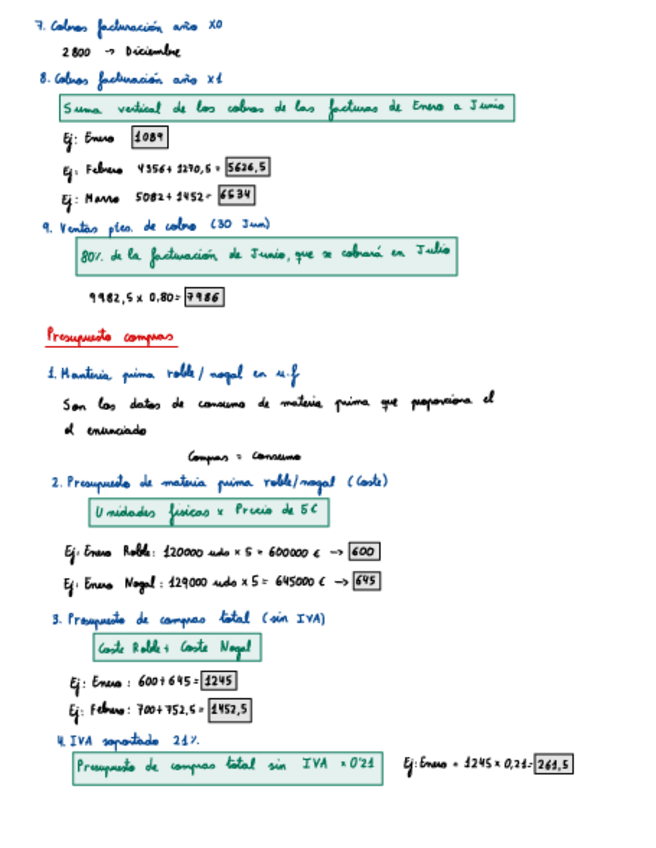 7. Cobros facturación año X0
2800 → Diciembre
8. Cobros facturación año X1
Suma vertical de los cobros de las facturas de Enero a Junio
Ej: Enero 1089
Ej: Febrero 4356 + 1270,5 = 5626,5
Ej: Marzo 5082 + 1452 = 6534
9. Ventas ptes. de cobro (30 Jun)
80% de la facturación de Junio, que se cobrará en Julio
9982,5 x 0,80 = 7986
Presupuesto compras
1. Manteria prima roble / nogal en u.f
Son los datos de consumo de materia prima que proporciona el
el enunciado
Compras = Consumo
2. Presupuesto de materia prima roble/nogal (Coste)
Unidades físicas x Precio de 5€
Ej: Enero Roble: 120000 uds x 5 = 600000 € → 600
Ej: Enero Nogal: 129000 uds x 5 = 645000 € → 645
3. Presupuesto de compras total (sin IVA)
Coste Roble + Coste Nogal
Ej: Enero: 600 + 645 = 1245
Ej: Febrero: 700 + 752,5 = 1452,5
4. IVA soportado 21%
Presupuesto de compras total sin IVA x 0'21 Ej: Enero = 1245 x 0,21 = 261,5